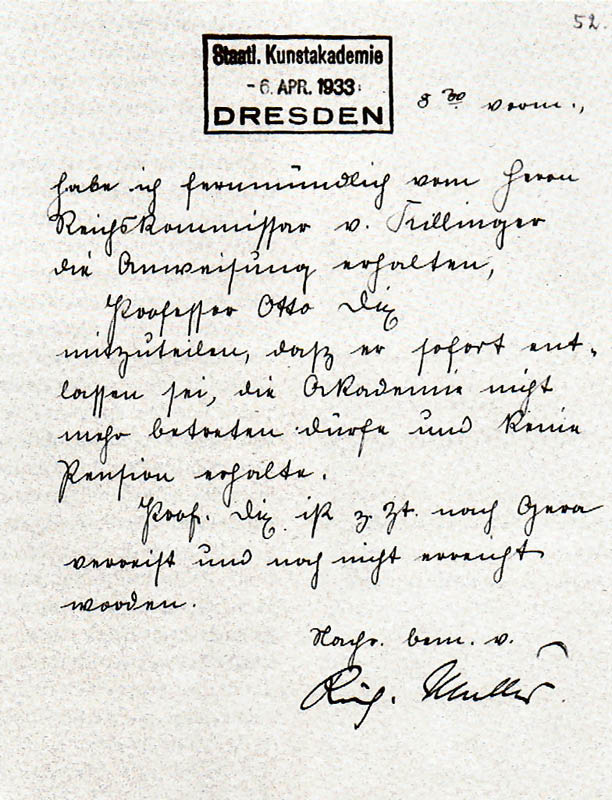 52.
Staatl. Kunstakademie
- 6. APR. 1933
DRESDEN
8 30 vorm.,
habe ich fernmündlich vom Herrn
Reichskommissar v. Killinger
die Anweisung erhalten,
Professor Otto Dix
mitzuteilen, daß er sofort ent-
lassen sei, die Akademie nicht
mehr betreten dürfe und keine
Pension erhalte.
Prof. Dix ist z. Zt. nach Gera
verreist und noch nicht erreicht
worden.
Nachr. bem. v.
Rich. Müller.